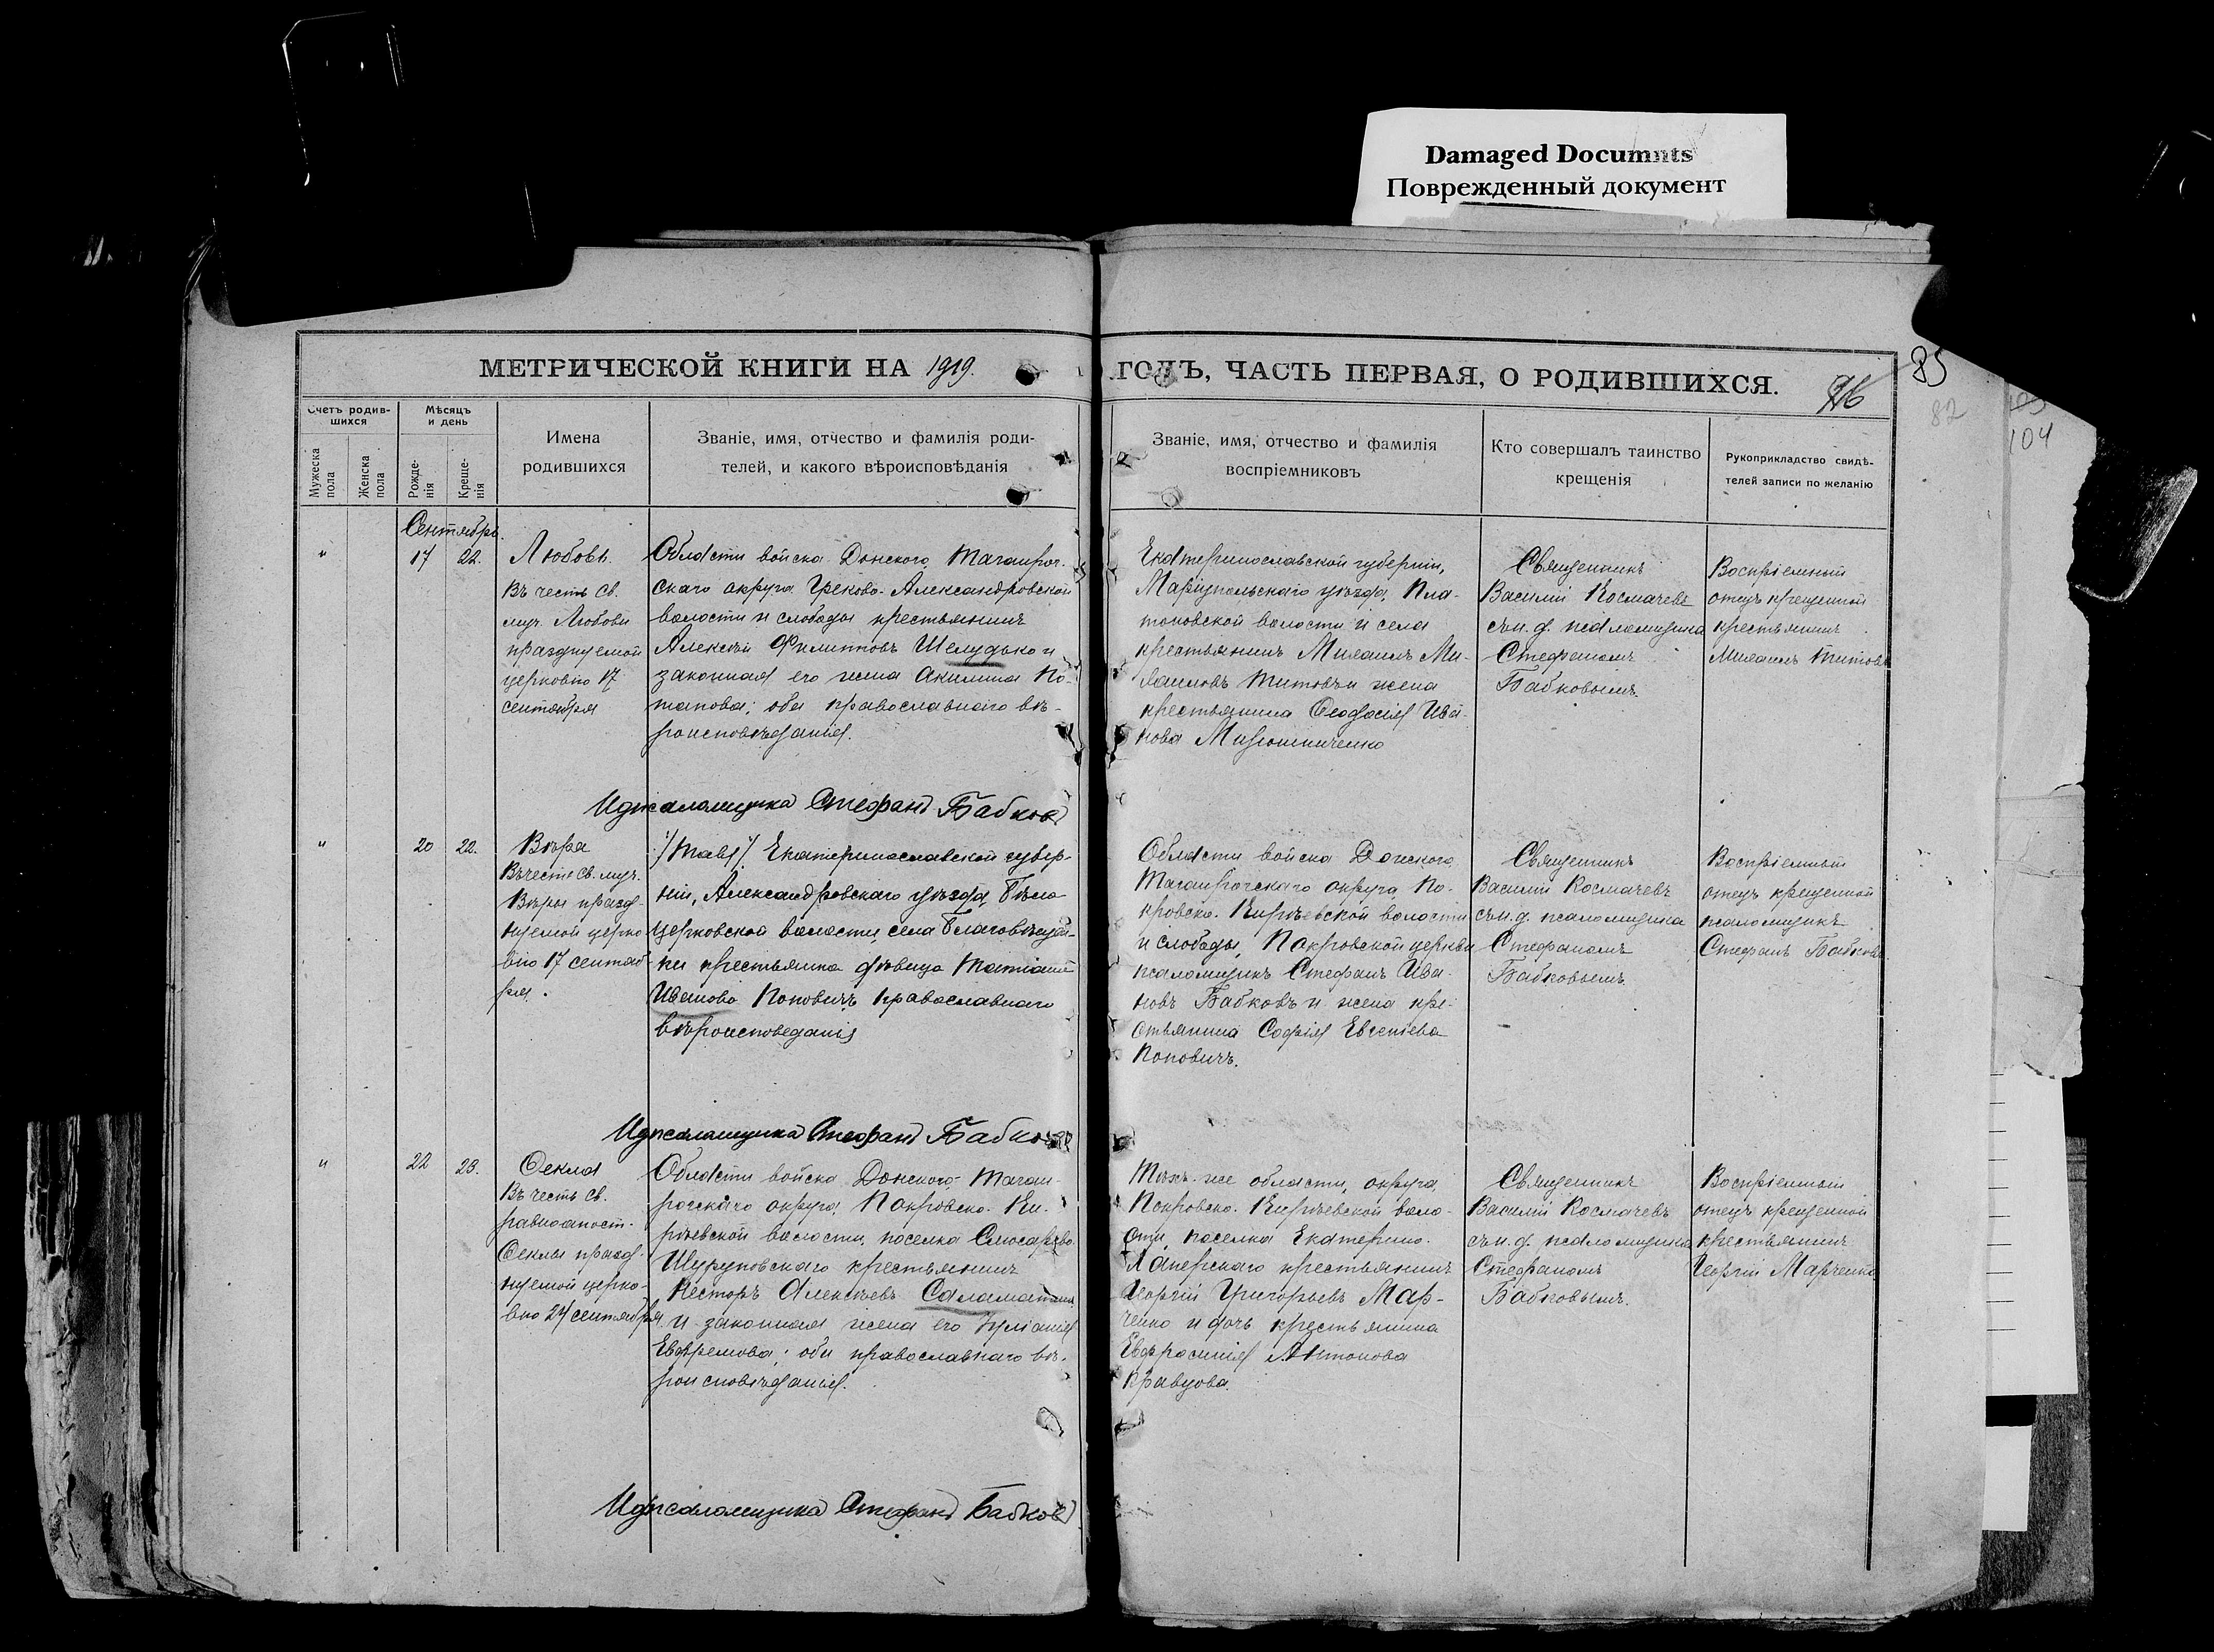 Damaged Documnts
Поврежденный документ
МЕТРИЧЕСКОЙ КНИГИ НА 1919.
ГОДЪ, ЧАСТЬ ПЕРВАЯ, О РОДИВШИХСЯ.
85
82
104
Счетъ родив-
шихся
Мужеска
пола
Женска
пола
Мѣсяцъ
и день
Рожде-
нія
Креще-
нія
Имена
родившихся
Званіе, имя, отчество и фамилія роди-
телей, и какого вѣроисповѣданія
Званіе, имя, отчество и фамилія
воспріемниковъ
Кто совершалъ таинство
крещенія
Рукоприкладство свидѣ-
телей записи по желанію
Сентябрь.
"
17
22.
Любовь
Въ честь св.
муч. Любови
празднуемой
церковію 17
сентября
Области войска Донского, Таганрог-
скаго округа Греково-Александровской
волости и слободы крестьянинъ
Алексѣй Филипповъ Шелудько и
законная его жена Акилина По-
тапова; оба православнаго вѣ-
роисповѣданія.
Екатеринославской губерніи,
Маріупольскаго уѣзда, Пла-
тоновской волости и села
крестьянинъ Михаилъ Ми-
хаиловъ Титовъ и жена
крестьянина Феодосія Ива-
нова Мирошниченко
Священникъ
Василій Космачевъ
съ и. д. псаломщика
Стефаномъ
Бабковымъ.
Воспріемный
отецъ крещенной
крестьянинъ
Михаилъ Титовъ
И д псаломщика Стефанъ Бабковъ
"
20
22.
Вѣра
Въ честь св. муч.
Вѣры празд-
нуемой церко-
вію 17 сентяб-
ря.
Екатеринославской губер-
ніи, Александровскаго уѣзда, Бѣло-
церковской волости, села Благовѣщен-
ки крестьянка дѣвица Татіана
Иванова Поповичъ, православнаго
вѣроисповеданія
Области войска Донского,
Таганрогскаго округа, По-
кровско-Кирѣевской волости
и слободы, Покровской церкви
псаломщикъ Стефанъ Ива-
новъ Бабковъ и жена кре-
стьянина Софія Евгеніева
Поповичъ.
Священникъ
Василій Космачевъ
съ и. д. псаломщика
Стефаномъ
Бабковымъ.
Воспріемный
отецъ крещенной
псаломщикъ
Стефанъ Бабковъ.
И д псаломщика Стефанъ Бабковъ
"
22
23.
Фекла
Въ честь св.
равноапост.
Феклы празд-
нуемой церко-
вію 24 сентября.
Области войска Донского, Таган-
рогскаго округа, Покровско-Ки-
рѣевской волости, поселка Слюсарево-
Шуруповскаго крестьянинъ
Несторъ Алексѣевъ Саламатинъ
и законная жена его Іуліанія
Евфремова; оба православнаго вѣ-
роисповѣданія.
Тѣхъ-же области, округа,
Покровско-Кирѣевской воло-
сти, поселка Екатерино-
Хаперскаго крестьянинъ
Георгій Григорьевъ Мар-
ченко и дочь крестьянина
Евфросинія Антонова
Кравцова.
Священникъ
Василій Космачевъ
съ и. д. псаломщика
Стефаномъ
Бабковымъ.
Воспріемный
отецъ крещенной
крестьянинъ
Георгій Марченко
И д псаломщика Стефанъ Бабковъ